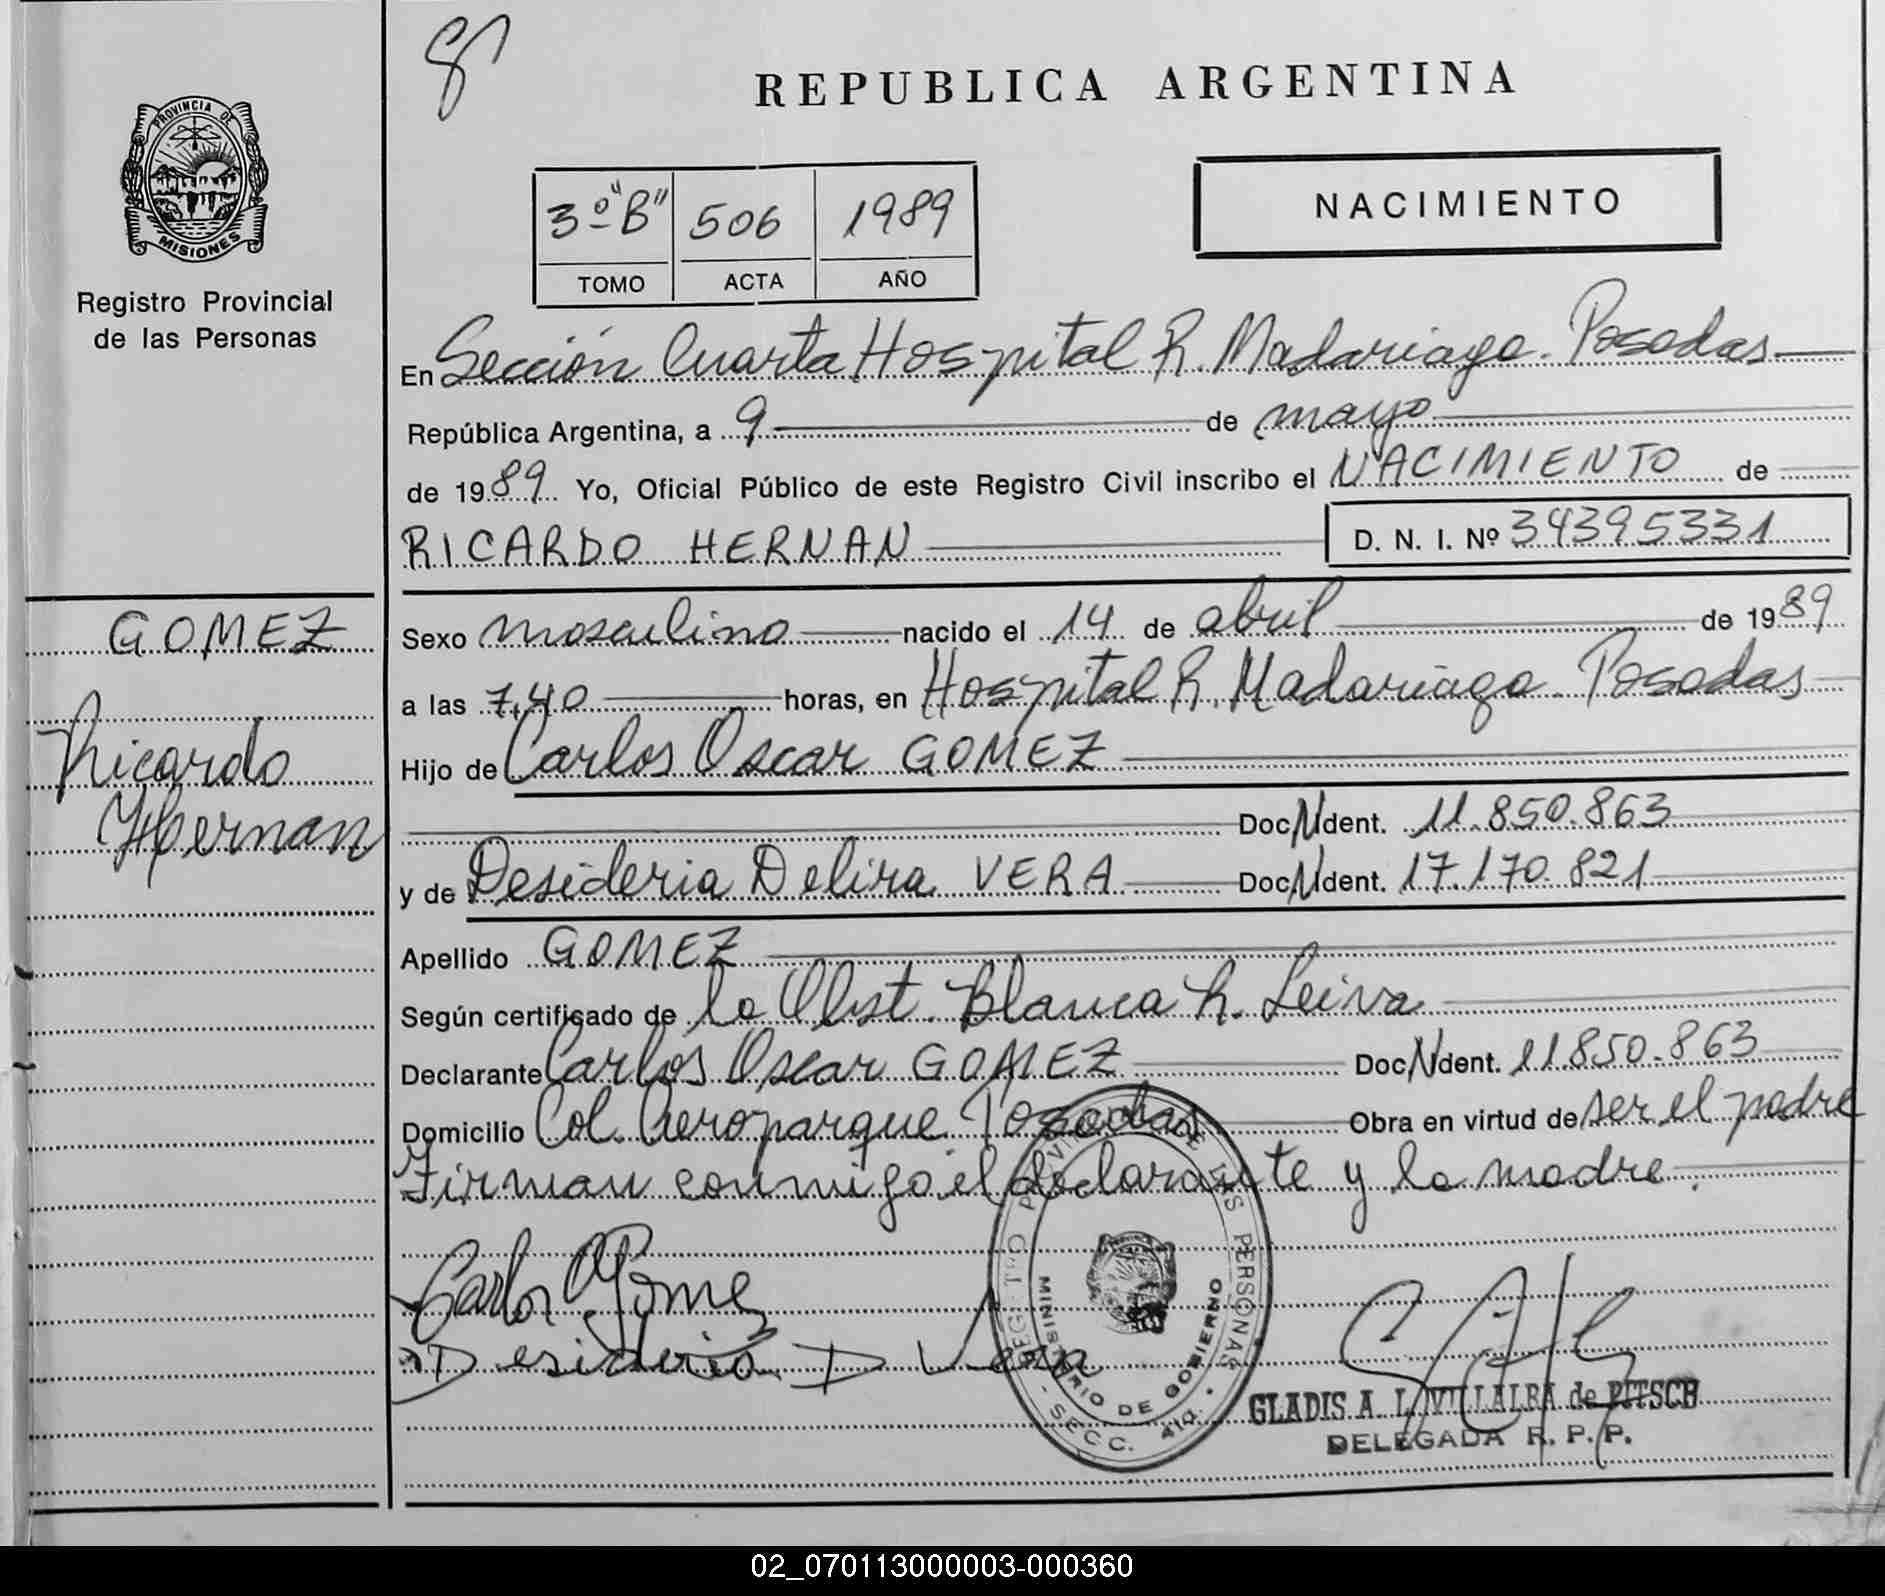 8
REPUBLICA ARGENTINA
PROVINCIA DE
MISIONES
Registro Provincial
de las Personas
NACIMIENTO
3º "B" 506 1989
TOMO ACTA AÑO
En Sección Cuarta Hospital R. Madariaga. Posadas
República Argentina, a 9 de mayo
de 1989 Yo, Oficial Público de este Registro Civil inscribo el NACIMIENTO de
RICARDO HERNAN D. N. I. Nº 34395331
GOMEZ
Ricardo
Hernan
Sexo masculino nacido el 14 de abril de 1989
a las 7,40 horas, en Hospital R. Madariaga. Posadas
Hijo de Carlos Oscar GOMEZ
Doc. N Ident. 11.850.863
y de Desideria Delira VERA Doc. N Ident. 17.170.821
Apellido GOMEZ
Según certificado de la Obst. Blanca R. Leiva
Declarante Carlos Oscar GOMEZ Doc. N Ident. 11.850.863
Domicilio Col. Aeroparque Posadas Obra en virtud de ser el padre
Firman conmigo el declarante y la madre.
Carlos O Gomez
Desideria D Vera
REGISTRO PROVINCIAL DE LAS PERSONAS
MINISTERIO DE GOBIERNO
- SECC. 4ta. -
GLADIS A. L. VILLALBA de PITSCH
DELEGADA R. P. P.
02_070113000003-000360